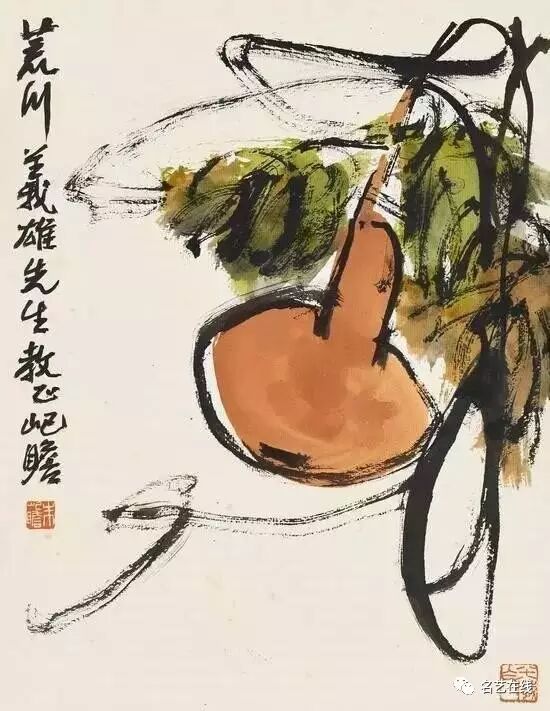 荒川義雄先生教正屺瞻
名艺在线